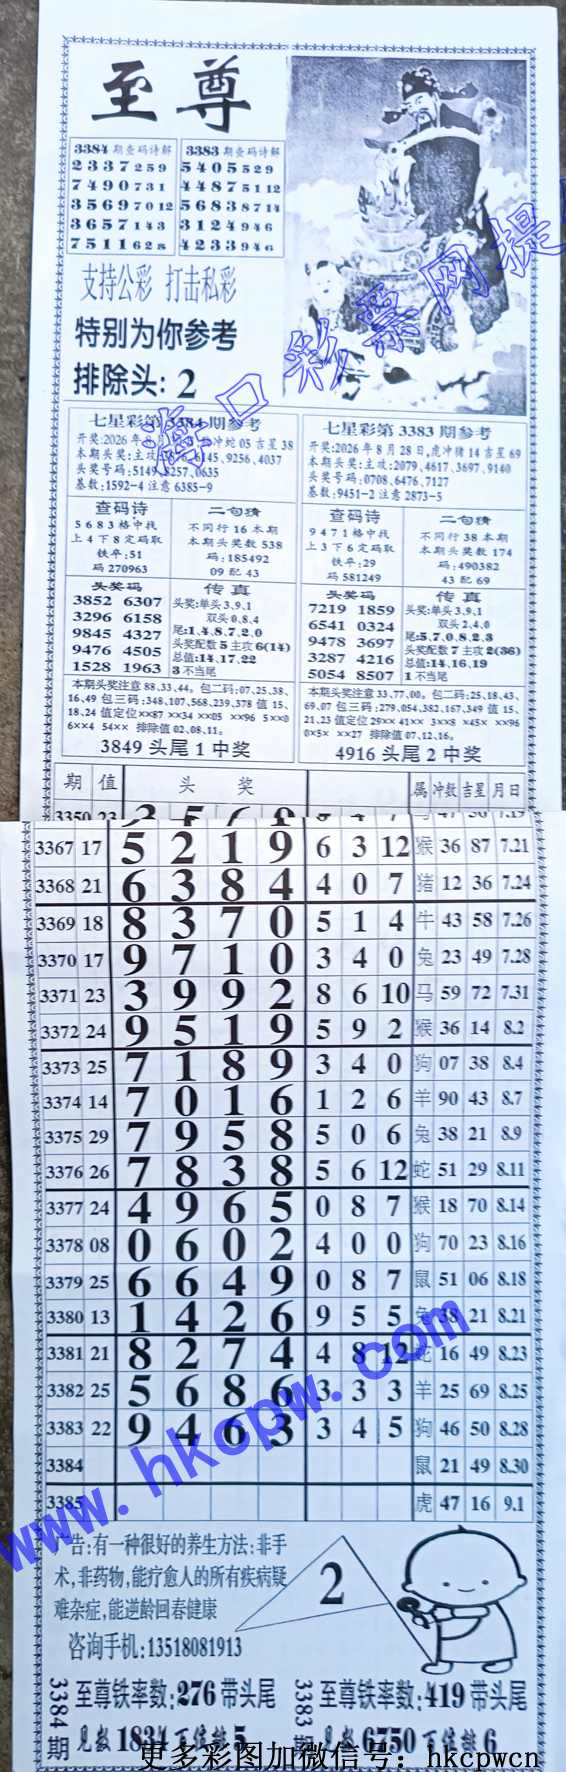 至尊
3384期查码诗解
2 3 3 7 2 5 9
7 4 9 0 7 3 1
3 5 6 9 7 0 12
3 6 5 7 1 4 3
7 5 1 1 6 2 8
3383期查码诗解
5 4 0 5 5 2 9
4 4 8 7 5 11 12
5 6 8 3 8 7 14
3 1 2 4 9 4 6
4 2 3 3 9 4 6
支持公彩 打击私彩
特别为你参考
排除头: 2
海口彩票网提
七星彩第3384期参考
开奖:2026年 冲蛇05吉星38
本期头奖:主攻: 6145,9256,4037
头奖号码:5149, 3257,0635
基数:1592-4 注意 6385-9
查码诗
5683格中找
上4下8定码取
铁卒:51
码 270963
二句猜
不同行16本期
本期头奖数538
码:185492
09 配 43
头奖码
3852 6307
3296 6158
9845 4327
9476 4505
1528 1963
传真
头奖:单头3、9、1
双头0、8、4
尾:1、4、8、7、2、0
头奖配数5主攻6(14)
总值:14、17、22
3不当尾
本期头奖注意 88、33、44。包二码:07、25、38、
16、49 包三码:348、107、568、239、378 值 15、
18、24 值定位××87 ××34 ××05 ××96 5××0
6××4 54×× 排除值 02、08、11。
3849 头尾 1 中奖
七星彩第3383期参考
开奖:2026年8月28日,虎冲猪14吉星69
本期头奖:主攻:2079,4617,3697,9140
头奖号码:0708,6476,7127
基数:9451-2 注意 2873-5
查码诗
9471格中找
上3下6定码取
铁卒:29
码 581249
二句猜
不同行38本期
本期头奖数174
码:490382
43 配 69
头奖码
7219 1859
6541 0324
9478 3697
3287 4216
5054 8507
传真
头奖:单头3、9、1
双头2、4、0
尾:5、7、0、8、2、3
头奖配数7主攻2(36)
总值:14、16、19
1不当尾
本期头奖注意 33、77、00。包二码:25、18、43、
69、07 包三码:279、054、382、167、349 值 15、
21、23 值定位 29×× 41×× 3××8 ×45× ××96
0×5× ××27 排除值 07、12、16。
4916 头尾 2 中奖
期 值 头 奖 属 冲数 吉星 月日
3350 23
3367 17 5 2 1 9 6 3 12 猴 36 87 7.21
3368 21 6 3 8 4 4 0 7 猪 12 36 7.24
3369 18 8 3 7 0 5 1 4 牛 43 58 7.26
3370 17 9 7 1 0 3 4 0 兔 23 49 7.28
3371 23 3 9 9 2 8 6 10 马 59 72 7.31
3372 24 9 5 1 9 5 9 2 猴 36 14 8.2
3373 25 7 1 8 9 3 4 0 狗 07 38 8.4
3374 14 7 0 1 6 1 2 6 羊 90 43 8.7
3375 29 7 9 5 8 5 0 6 兔 38 21 8.9
3376 26 7 8 3 8 5 6 12 蛇 51 29 8.11
3377 24 4 9 6 5 0 8 7 猴 18 70 8.14
3378 08 0 6 0 2 4 0 0 狗 70 23 8.16
3379 25 6 6 4 9 0 8 7 鼠 51 06 8.18
3380 13 1 4 2 6 9 5 5 兔 38 21 8.21
3381 21 8 2 7 4 4 8 12 蛇 16 49 8.23
3382 25 5 6 8 6 3 3 3 羊 25 69 8.25
3383 22 9 4 6 3 3 4 5 狗 46 50 8.28
3384 鼠 21 49 8.30
3385 虎 47 16 9.1
www.hkcpw.com
广告:有一种很好的养生方法:非手
术,非药物,能疗愈人的所有疾病疑
难杂症,能逆龄回春健康
咨询手机:13518081913
2
3384期
至尊铁率数:276带头尾
见救1834百位排5
3383期
至尊铁率数:419带头尾
见救6750百位排6
更多彩图加微信号: hkcpwcn